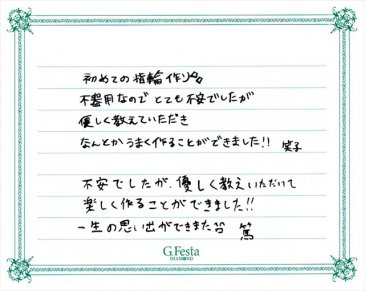 初めての指輪作り
不器用なので とても不安でしたが
優しく教えていただき
なんとかうまく作ることができました!! 笑子
不安でしたが、優しく教えいただいて
楽しく作ることができました!!
一生の思い出ができまた 篤
G.Festa
DIAMOND